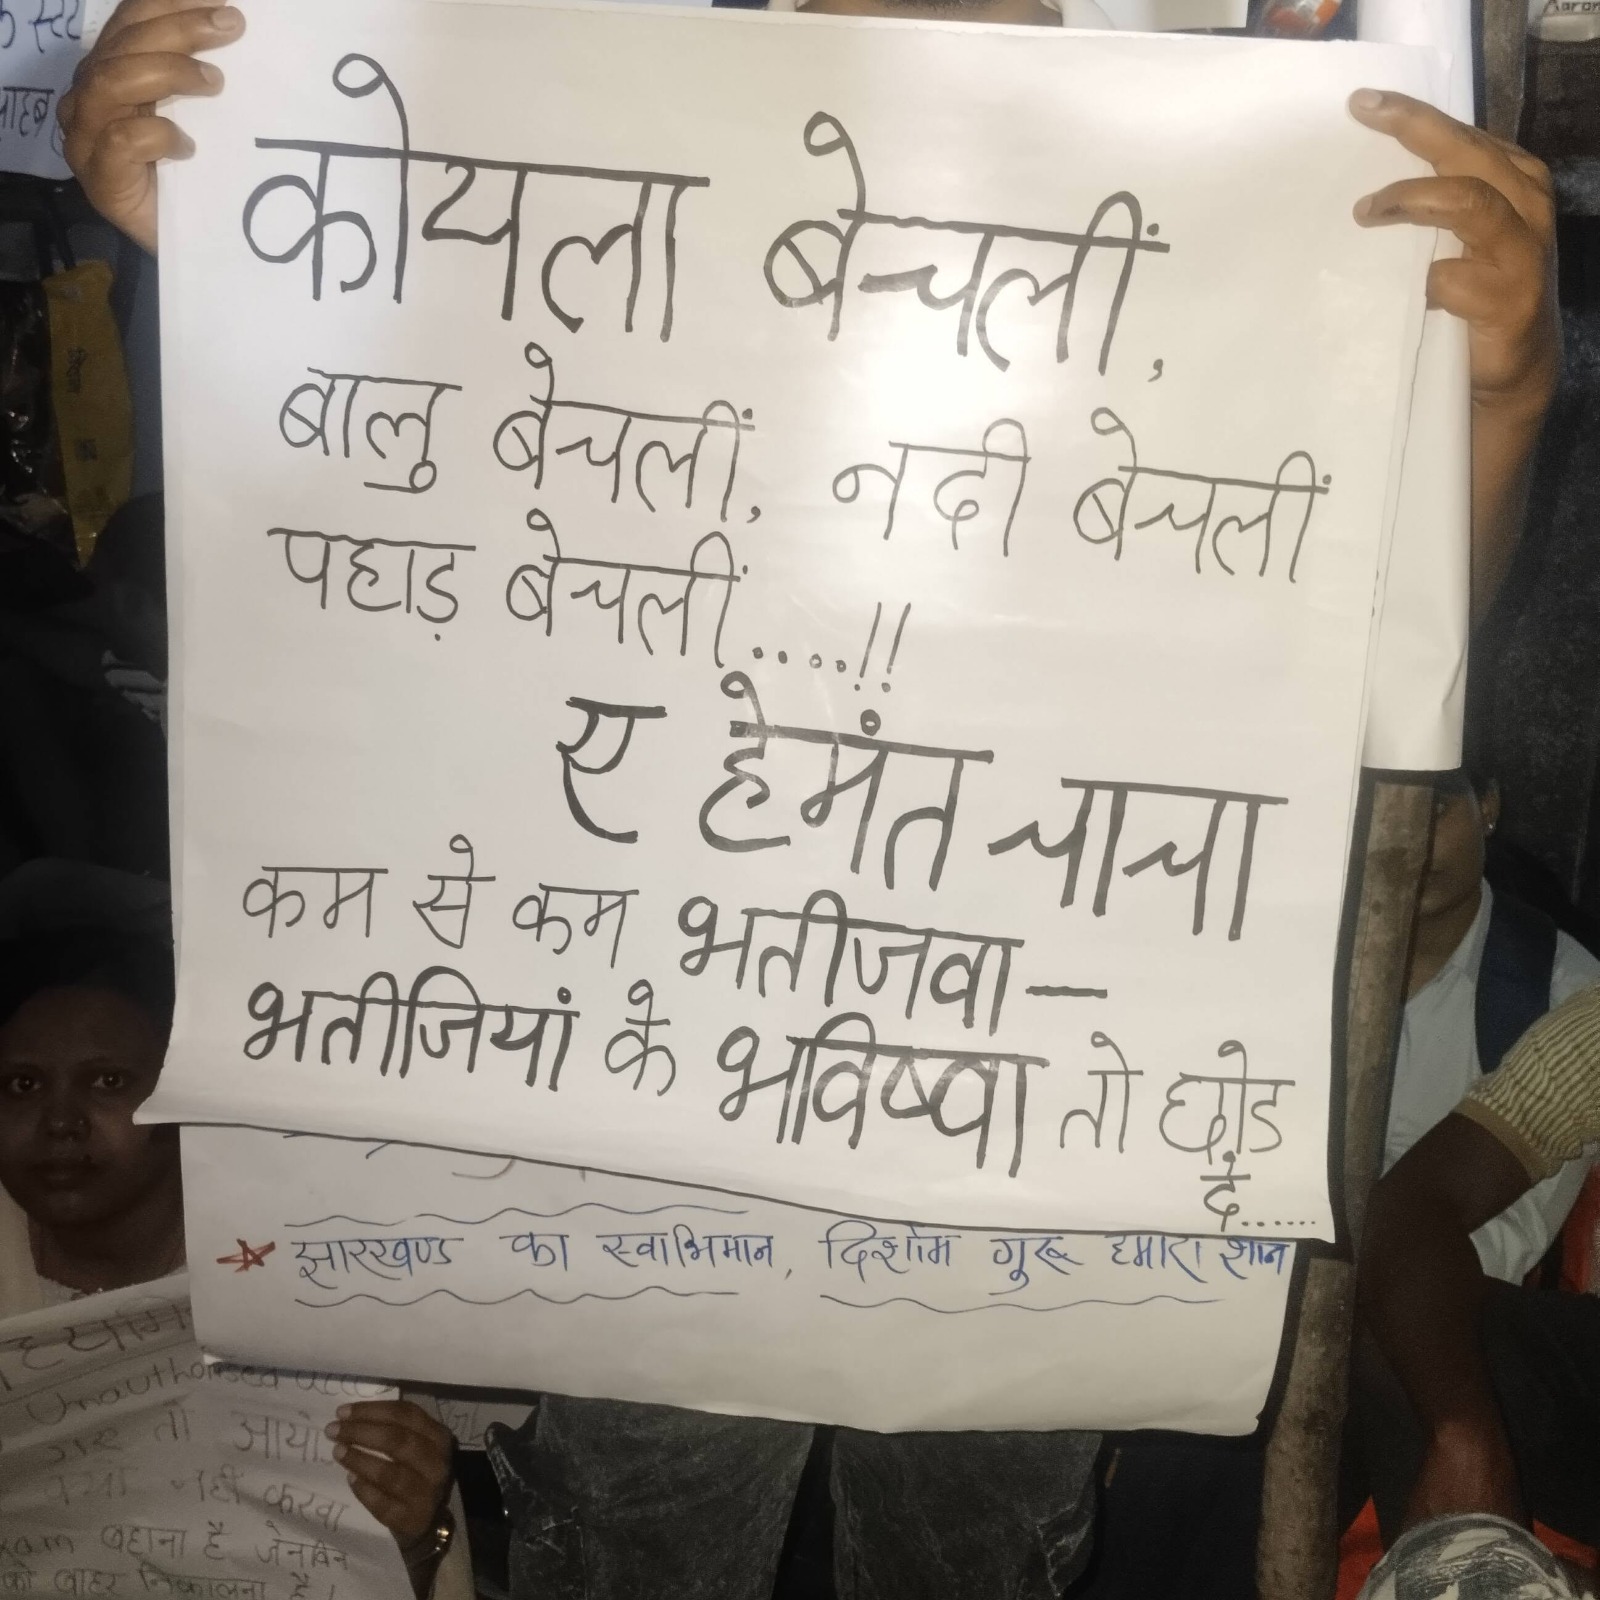 कोयला बेचलीं,
बालु बेचलीं, नदी बेचलीं
पहाड़ बेचलीं....!!
ए हेमंत चाचा
कम से कम भतीजवा-
भतीजियां के भविष्वा तो छोड
दे......
झारखण्ड का स्वाभिमान, दिशोम गुरू हमारा शान
Unauthorised
तो आयो
नहीं करवा
बहाना है जेनविन
को बाहर निकालना है।